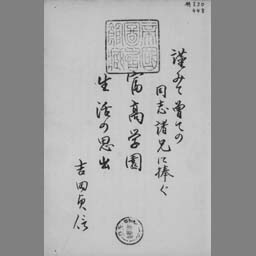 謹みて曽ての
同志諸兄に捧ぐ
富高学園
生活の思出
吉田貞信